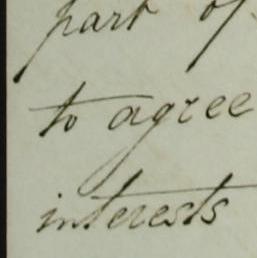 part of
to agree
interests